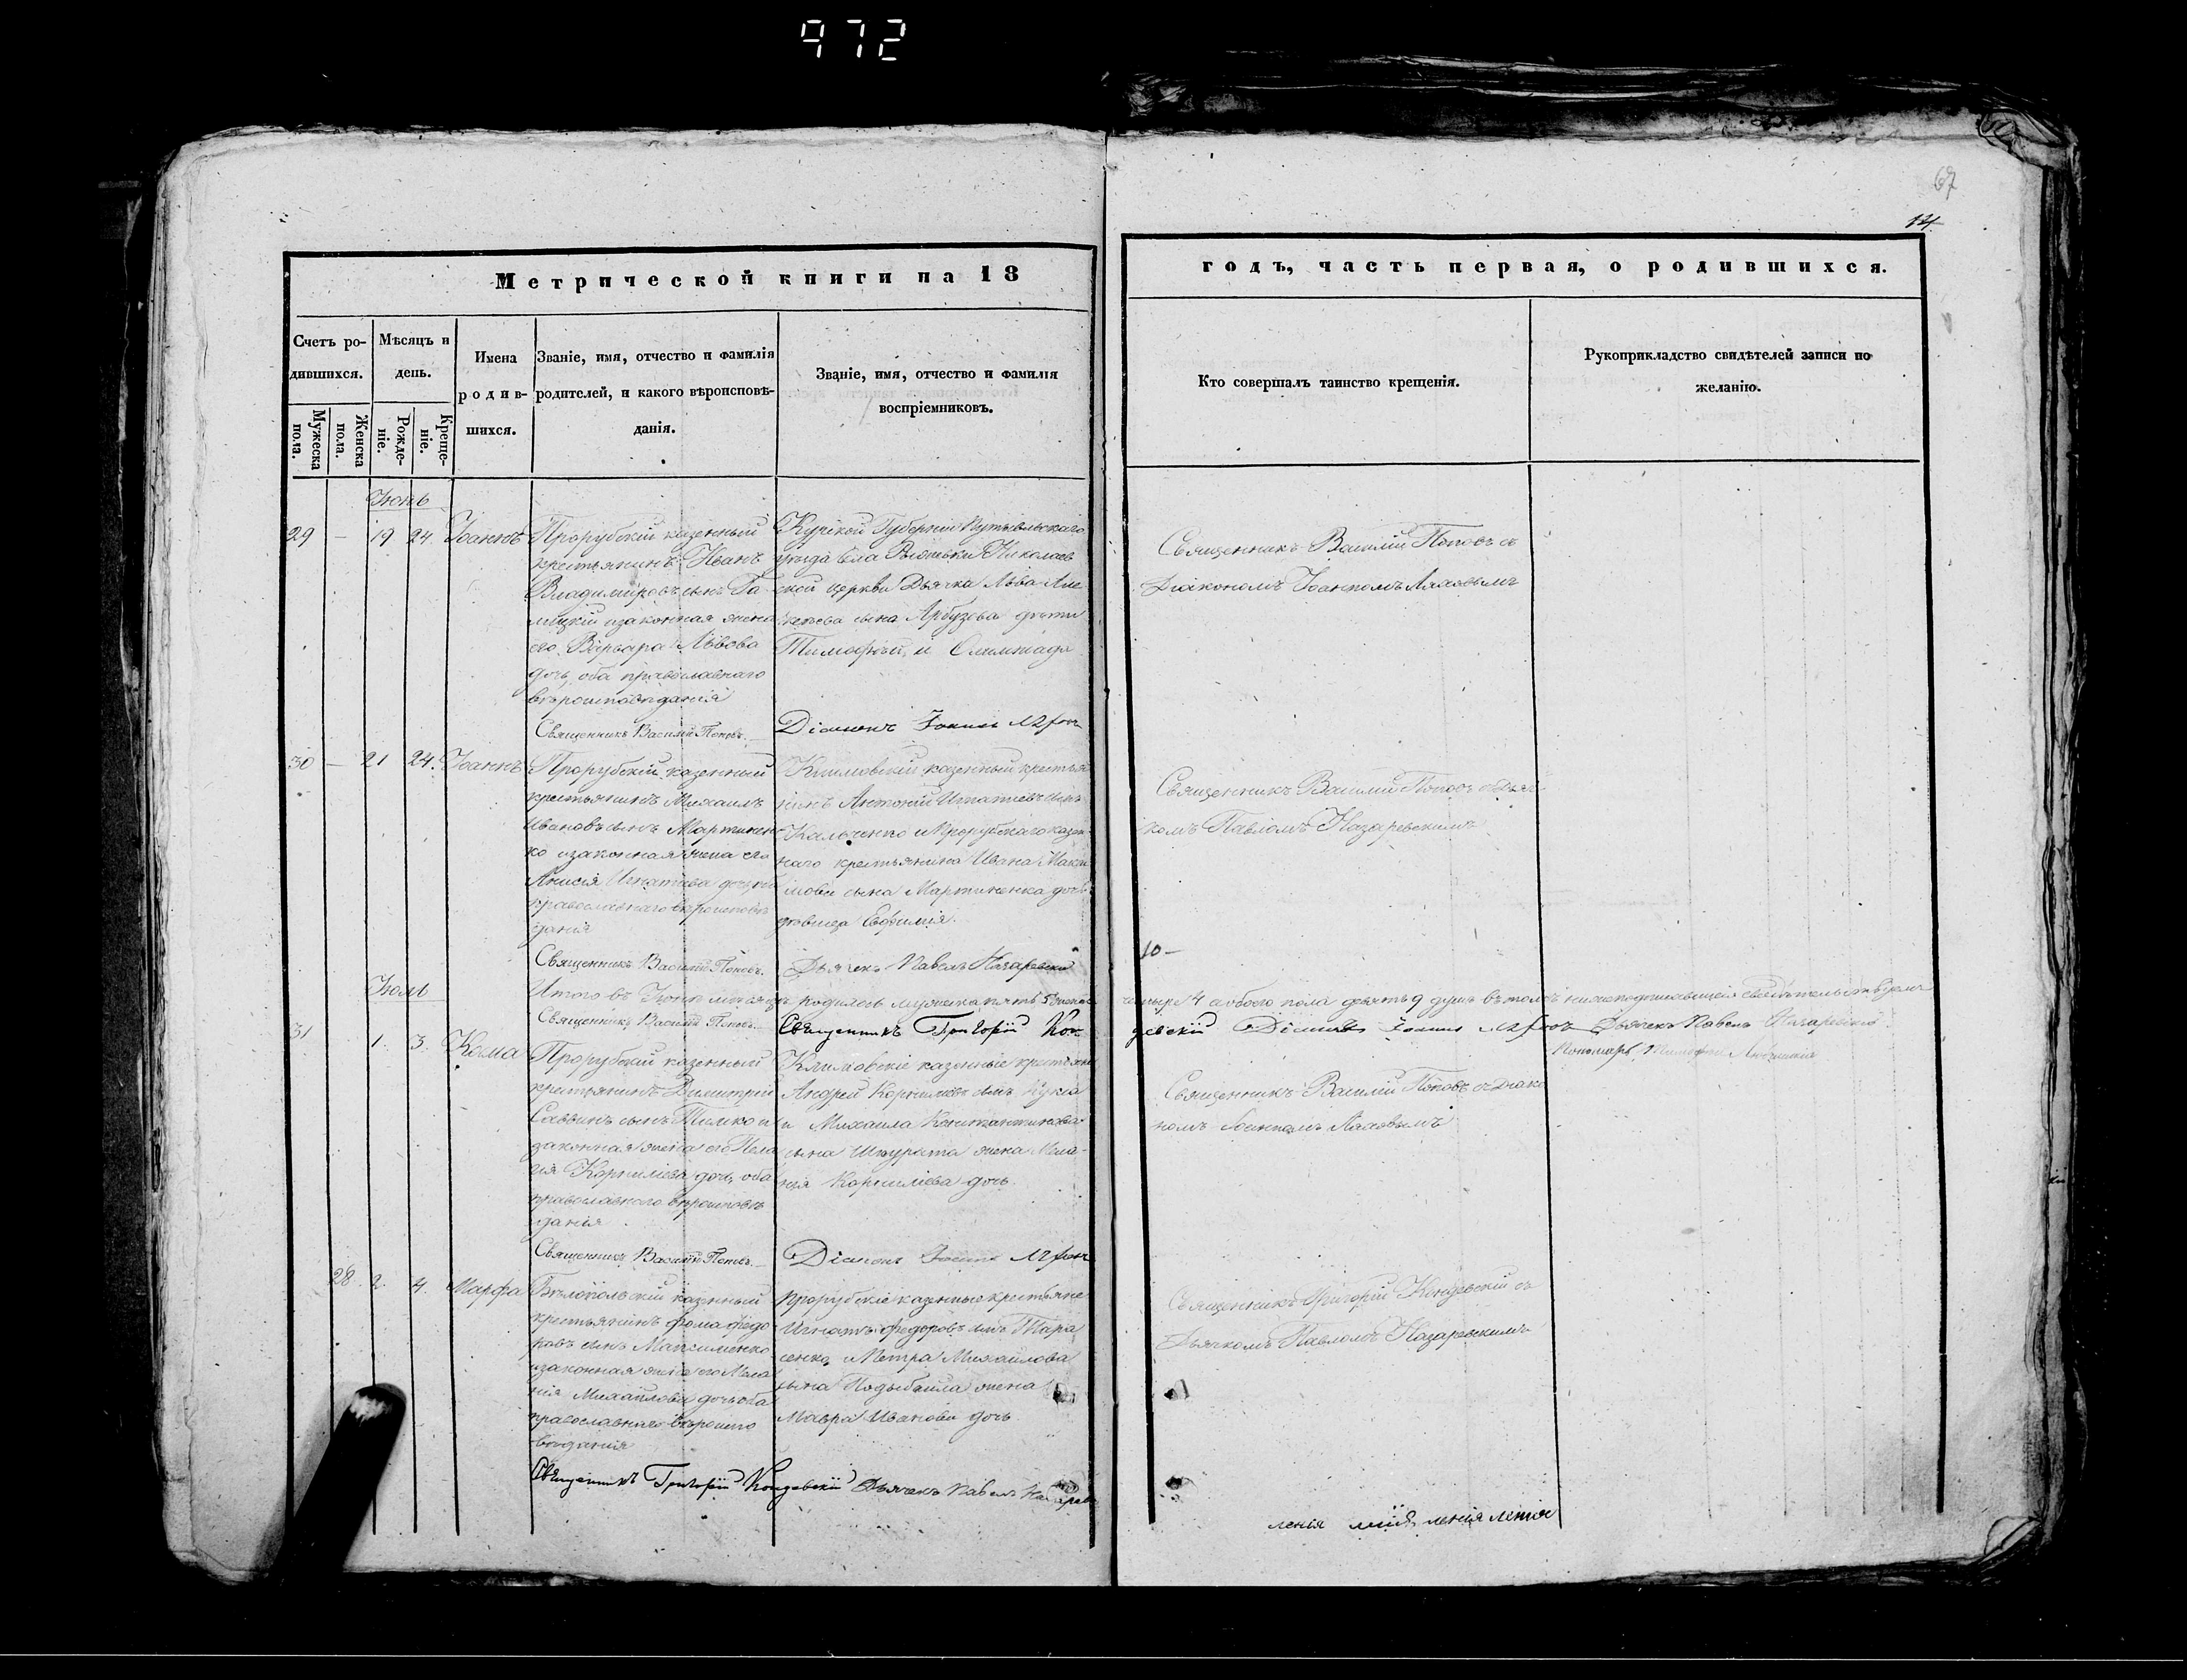 972
67
14
Метрической книги на 18
годъ, часть первая, о родившихся.
Счетъ ро-
дившихся.
Мужеска
пола.
Женска
пола.
Мѣсяцъ и
день.
Рожде-
ніе.
Креще-
ніе.
Имена
родив-
шихся.
Званіе, имя, отчество и фамилія
родителей, и какого вѣроисповѣ-
данія.
Званіе, имя, отчество и фамилія
воспріемниковъ.
Кто совершалъ таинство крещенія.
Рукоприкладство свидѣтелей записи по
желанію.
Іюнь
29 — 19 24. Іоаннъ
Прорубскій казенный
крестьянинъ Иванъ
Владиміровъ сынъ Га-
лицкій изаконная жена
его Варвара Львова
дочь, оба православнаго
вѣроисповѣданія
Священникъ Василій Поповъ.
Курской Губерніи Путивльскаго
уѣзда села Николаев
ской церкви Дьячка Льва Але
сына Арбузова дѣти
Тимофей и Олимпіада
Діаконъ Іоаннъ
Священникъ Василій Поповъ съ
Діакономъ Іоанномъ
30 — 21 24. Іоаннъ
Прорубскій казенный
крестьянинъ Михаилъ
Ивановъ сынъ Мартинен
ко изаконная жена его
Анисія Игнатіева дочь,
православнаго вѣроисповѣ
данія
Священникъ Василій Поповъ.
Климовскій казенный крестья
нинъ Антоній Игнатіевъ сынъ
Кальченко иПрорубскаго казен-
наго крестьянина Ивана Макси
мова сына Мартиненка дочь
дѣвица Евфимія.
Дьячекъ Павелъ Назаревскій
Священникъ Василій Поповъ съДьяч
комъ Павломъ Назаревскимъ
10 —
Итого въ Іюнѣ мѣсяцѣ родилось мужеска пять 5 женска
четыре 4 аобоего пола девять 9 душъ въ томъ нижеподписавшіеся свидѣтельствуемъ
Священникъ Василій Поповъ. Священникъ Григорій Кон-
девскій Діаконъ Іоаннъ Дьячекъ Павелъ Назаревскій
Пономарь Тимофей
Іюль
31 1. 3. Косма
Прорубскій казенный
крестьянинъ Димитрій
Саввинъ сынъ Тимко и
законная жена его Пела
гія Корнилієва дочь, оба
православнаго вѣроисповѣ
данія
Священникъ Василій Поповъ.
Климовскіе казенные крестьяне
Андрей Корнилієвъ сынъ
и Михаила Константинова
сына Шкурата жена Мела-
нія Корнилієва дочь.
Діаконъ Іоаннъ
Священникъ Василій Поповъ съДіако
номъ Іоанномъ
28 2. 4. Марфа
Бѣлопольскій казенный
крестьянинъ Фома Федо
ровъ сынъ Максименко
изаконная жена его Мела
нія Михайлова дочь оба
православнаго вѣроиспо
вѣданія
Священникъ Григорій Кондевскій Дьячекъ Павелъ Назаревск
Прорубскіе казенные крестьяне
Игнатъ Федоровъ сынъ Тара
сенко, иПетра Михайлова
сына жена
Мавра Иванова дочь
Священникъ Григорій Кондевскій съ
Дьячкомъ Павломъ Назаревскимъ
ленія ленія ленія